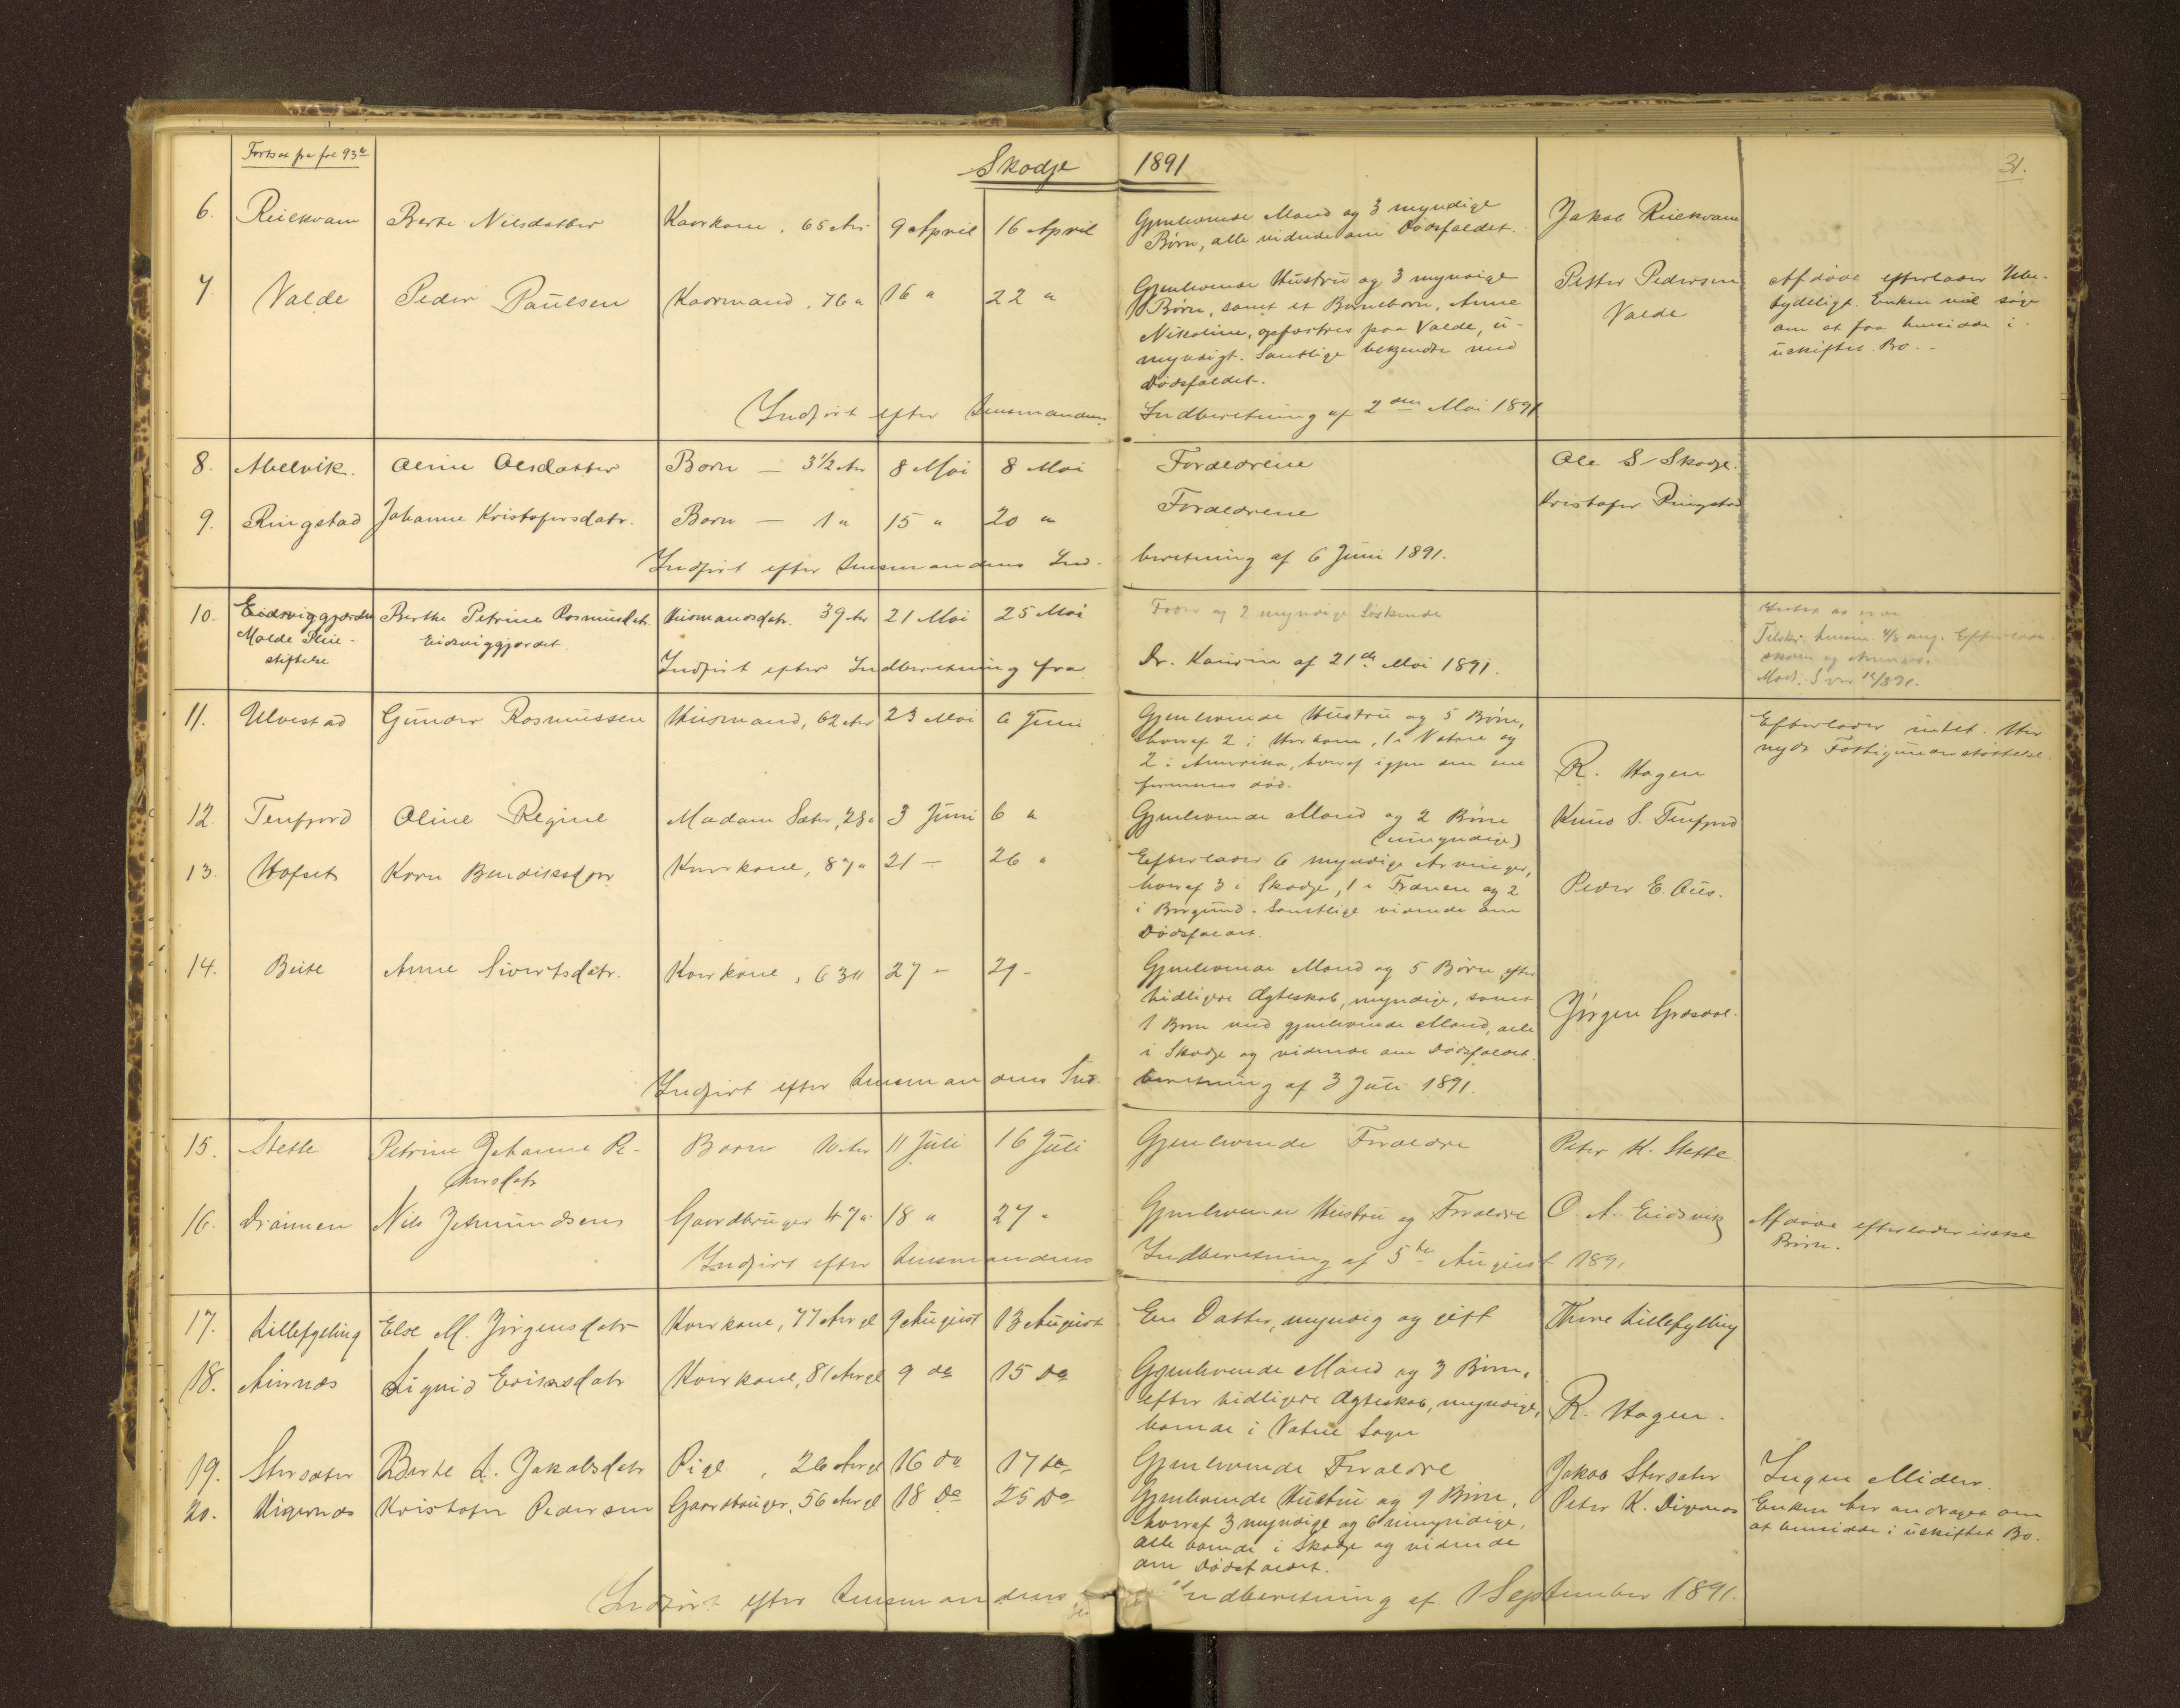 Forts. fra fol 93b
Skodje 1891
31.
6. Riiekvam Berte Nilsdatter Kaarkone, 65 Aar 9 April 16 April Gjenlevende Mand og 3 myndige Jakob Riiekvam
Børn, alle vidende om Dødsfaldet.
7. Valde Peder Paulsen Kaarmand, 76 " 16 " 22 " Gjenlevende Hustru og 3 myndige Petter Pedersen Afdøde efterlader Ube-
Børn, samt et Barnebarn, Anne Valde tydeligt. Enken vil søge
Nikoline, opfostres paa Valde, u- om at faa hensidde i
myndigt. Samtlige bekjendte med uskiftet Bo.-
Dødsfaldet.
Indført efter Lensmandens Indberetning af 2den Mai 1891
8. Abelvik. Oline Olsdatter Barn — 3½ Aar 8 Mai 8 Mai Forældrene Ole S. Skodje.
9. Ringstad Johanne Kristofersdatr. Barn — 1 " 15 " 20 " Forældrene Kristofer Ringstad
Indført efter Lensmandens Ind- beretning af 6 Juni 1891.
10. Eidsviggjærdet Berthe Petrine Rasmusdatr. Husmandsdatr. 39 Aar 21 Mai 25 Mai og 2 myndige Søskende
Molde Pleie- Eidsviggjærdet
stiftelse Indført efter Indberetning fra Dr. Kaurin af 21de Mai 1891.
11. Ulvestad Gunder Rasmussen Husmand, 62 Aar 23 Mai 6 Juni Gjenlevende Hustru og 5 Børn, Efterlader intet. Har
hvoraf 2 i Herkom, 1 i Vatne og nydt Fattigunderstøttelse.
2 i Amerika, hvoraf igjen den ene R. Hagen
formenes død.
12. Tenfjord Oline Regine Madam Sæter, 28 " 3 Juni 6 " Gjenlevende Mand og 2 Børn Knud S. Tenfjord
(umyndige)
13. Hofset Karn Bendiksdtr Kaarkone, 87 " 21 — 26 " Efterlader 6 myndige Arvinger,
hvoraf 3 i Skodje, 1 i Frænen og 2 Peder E. Aus.
i Borgund. Samtlige vidende om
Dødsfaldet.
14. Beite Anne Sivertsdatr. Kaarkone, 63 " 27 — 29 — Gjenlevende Mand og 5 Børn efter
tidligere Ægteskab, myndige, samt
1 Barn med gjenlevende Mand, alle Jørgen Græsdal.
i Skodje og vidende om Dødsfaldet.
Indført efter Lensmandens Ind- beretning af 3 Juli 1891.
15. Stette Petrine Johanne Pe- Barn 10 Aar 11 Juli 16 Juli Gjenlevende Forældre Peter K. Stette.
tersdatr
16. Drønnen Nils Jetmundsen Gaardbruger 47 " 18 " 27 " Gjenlevende Hustru og Forældre O. A. Eidsvik Afdøde efterlader ikke
Børn.
Indført efter Lensmandens Indberetning af 5te August 1891
17. Lillefylling Else M. Jørgensdatr Kaarkone, 77 Aar gl 9 August 13 August En Datter, myndig og gift Thore Lillefylling
18. Aurnæs Signid Eriksdatr Kaarkone, 81 Aar gl 9 do 15 do Gjenlevende Mand og 3 Børn,
efter tidligere Ægteskab, myndige, R. Hagen.
boende i Vatne Sogn
19. Storsæter Berte L. Jakobsdatr Pige, 26 Aar gl 16 do 17 do Gjenlevende Forældre Jakob Storsæter Ingen Midler.
20. Digernæs Kristofer Pedersen Gaardbruger, 56 Aar gl 18 do 25 do Gjenlevende Hustru og 9 Børn, Peter K. Digernæs Enken har andraget om
hvoraf 3 myndige og 6 umyndige, at hensidde i uskiftet Bo.
alle boende i Skodje og vidende
om Dødsfaldet.
Indført efter Lensmandens Indberetning af 1 September 1891.